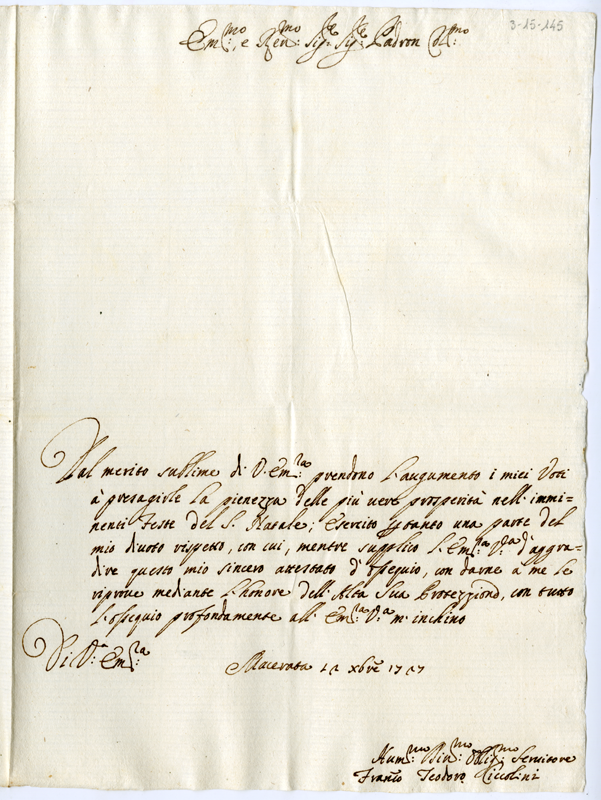 3-15-145
Em:mo, e Ren:mo Sig:re Sig:re Padron Col:mo
Dal merito sublime di V. Em:za prendono l'augumento i miei Voti
à presagirle la pienezza delle più uere prosperità nell' immi-
nenti feste del S. Natale; esercito pertanto una parte del
mio diuoto rispetto, con cui, mentre supplico l'Em:za V:ra d'aggra-
dire questo mio sincero attestato d'ossequio, con darne a me le
riproue mediante l'honore dell' Alta Sua Protezzione, con tutto
l'ossequio profondamente all' Em:za V:ra m'inchino
Di V:ra Em:za
Macerata xbre 17
Hum:mo Diu:mo Obli:mo Seruitore
Franco Teodoro Ciccolini